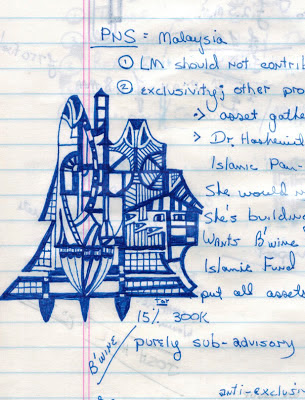 PNS = Malaysia
① LM should not contrib
② exclusivity; other pro
→ asset gathe
> Dr.
Islamic Pan-
She would n
She's buildin
Wants B'wine
Islamic Fund
put all assets
For
15% 300K
B'wine / purely sub-advisory
anti-exclusiv